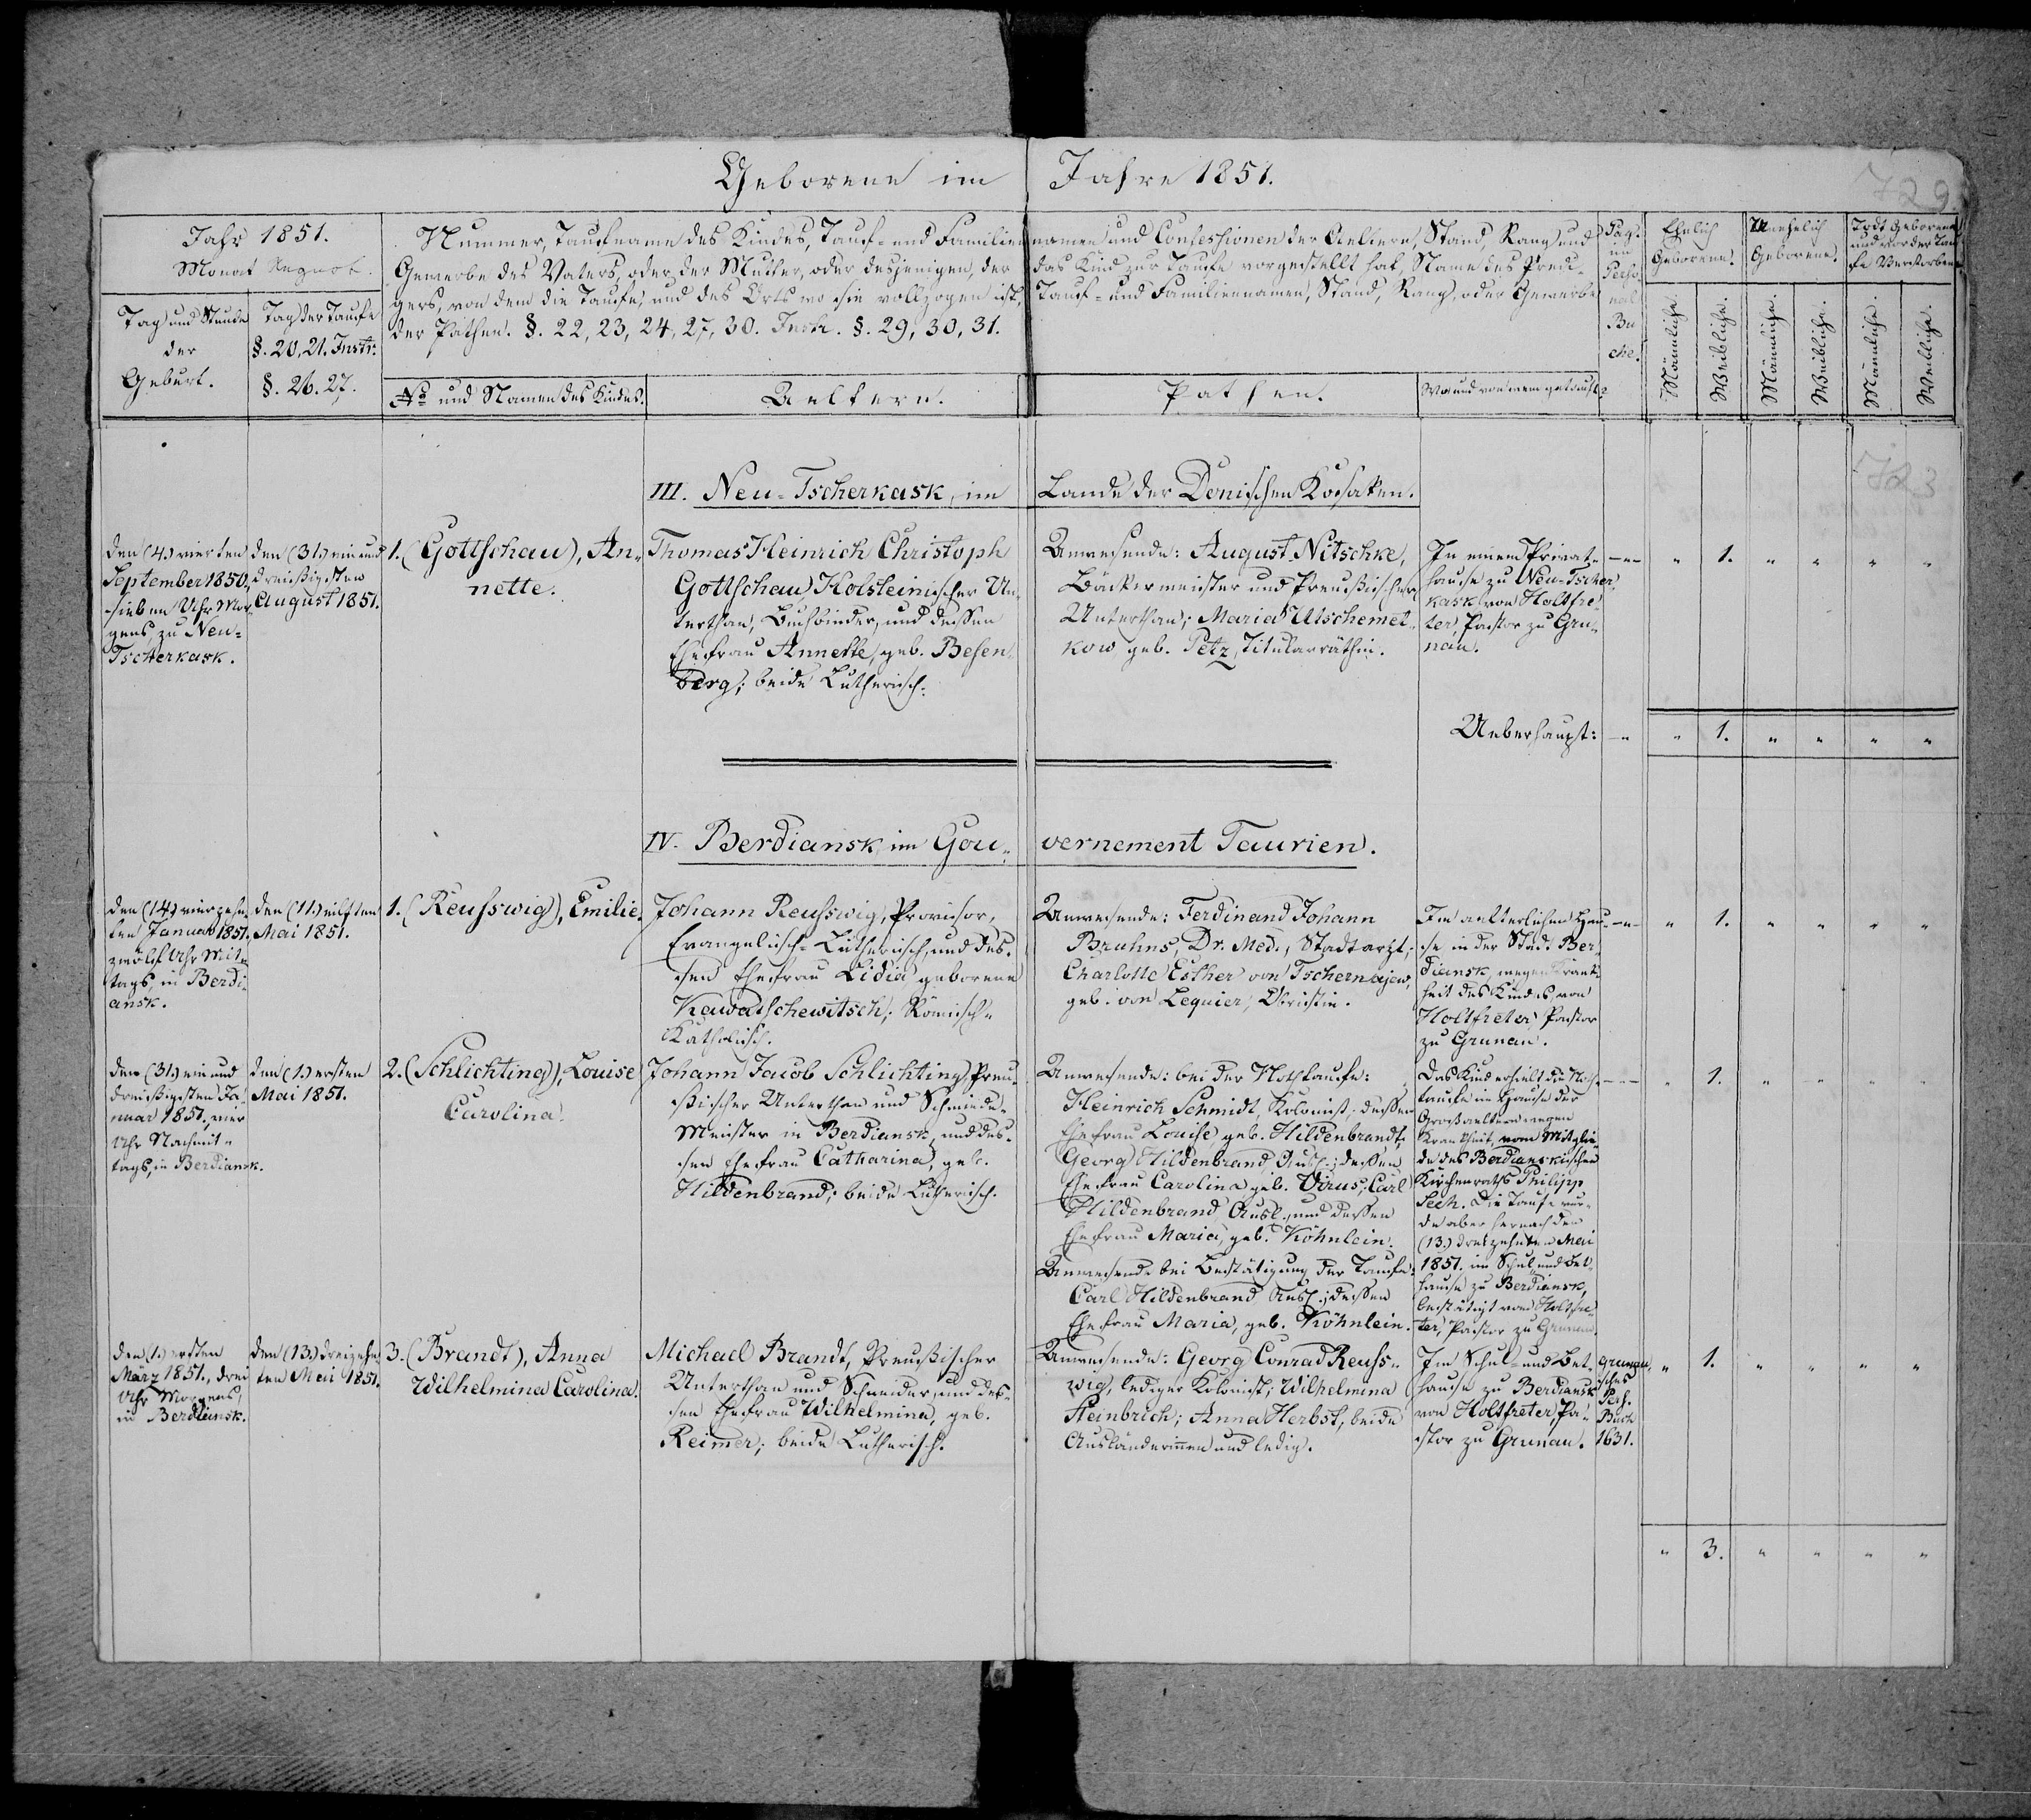 Geborene im Jahre 1851.
729.
Jahr 1851.
Monat August.
Tag und Stunde
der
Geburt.
Tag der Taufe
§. 20, 21. Instr.
§. 26. 27.
Nummer, Taufname des Kindes, Tauf- und Familiennamen und Confessionen der Aeltern, Stand, Rang und
Gewerbe des Vaters, oder der Mutter, oder desjenigen, der das Kind zur Taufe vorgestellt hat, Name des Predi-
gers, von dem die Taufe, und des Orts wo sie vollzogen ist, Tauf- und Familiennamen, Stand, Rang, oder Gewerbe
der Pathen. §. 22, 23, 24, 27, 30. Instr. §. 29, 30, 31.
No und Namen des Kindes.
Aeltern.
Pathen.
Wo und von wem getauft?
Pag.
im
Perso-
nal
Bu
che.
Ehelich
Geborene.
Unehelich
Geborene.
Todt Geborene
und vor der Tau-
fe Verstorbene
Männliche.
Weibliche.
Männliche.
Weibliche.
Männliche.
Weibliche.
723
III. Neu-Tscherkask, im Lande der Donischen Kosaken.
den (4.) vierten
September 1850,
sieben Uhr Mor-
gens, zu Neu-
Tscherkask.
den (31.) ein und
dreißigsten
August 1851.
1. (Gottschau), An-
nette.
Thomas Heinrich Christoph
Gottschau, Holsteinischer Un-
terthan, Buchbinder, und dessen
Ehefrau Annette, geb. Besen-
berg; beide Lutherisch.
Anwesende: August Nitschke,
Bäckermeister und Preußischer
Unterthan; Maria Utschemet-
kow geb. Petz, Titularräthin.
In einem Privat-
hause zu Neu-Tscher-
kask von Holtfre-
ter, Pastor zu Gru-
nau.
— „ —
„ 1. „ „ „ „
Ueberhaupt: — „ „ 1. „ „ „ „
IV. Berdiansk, im Gou- vernement Taurien.
den (14.) vierzehn-
ten Januar 1851.
zwölf Uhr Mit-
tags, in Berdi-
ansk.
den (11.) eilften
Mai 1851.
1. (Reusswig), Emilie.
Johann Reusswig, Provisor,
Evangelisch-Lutherisch, und des-
sen Ehefrau Lidia, geborene
Kawatschewitsch; Römisch-
Katholisch.
Anwesende: Ferdinand Johann
Bruhns, Dr. Med., Stadtarzt;
Charlotte Esther von Tschernajew,
geb. von Lequier, Obristin.
Im aelterlichen Hau-
se in der Stadt Ber-
diansk, wegen Krank-
heit des Kindes, von
Holtfreter, Pastor
zu Grunau.
— „ —
„ 1. „ „ „ „
den (31.) ein und
dreißigsten Ja-
nuar 1851, vier
Uhr Nachmit-
tags, in Berdiansk.
den (1.) ersten
Mai 1851.
2. (Schlichting), Louise
Carolina.
Johann Jacob Schlichting, Preu-
ßischer Unterthan und Schmiede-
Meister in Berdiansk, und des-
sen Ehefrau Catharina, geb.
Hildenbrand; beide Lutherisch.
Anwesende: bei der Nothtaufe:
Heinrich Schmidt, Kolonist; dessen
Ehefrau Louise geb. Hildenbrandt,
Georg Hildenbrand, Ausl.; dessen
Ehefrau Carolina geb. Virus; Carl
Hildenbrand Ausl., und dessen
Ehefrau Maria, geb. Köhnlein.
Anwesende bei Bestätigung der Taufe:
Carl Hildenbrand Ausl.; dessen
Ehefrau Maria, geb. Köhnlein.
Das Kind erhielt die Noth-
taufe im Hause der
Großaeltern wegen
Krankheit, vom Mitglie-
de des Berdianskischen
Kirchenraths Philipp
Sech. Die Taufe wur-
de aber hernach den
(13.) dreizehnten Mai
1851. im Schul- und Bet-
hause zu Berdiansk,
bestätigt von Holtfre-
ter, Pastor zu Grunau.
— „ —
„ 1. „ „ „ „
den (1.) ersten
März 1851., drei
Uhr Morgens,
in Berdiansk.
den (13.) dreizehn-
ten Mai 1851.
3. (Brandt), Anna
Wilhelmina Carolina.
Michael Brandt, Preußischer
Unterthan und Schneider, und des-
sen Ehefrau Wilhelmina, geb.
Reimer; beide Lutherisch.
Anwesende: Georg Conrad Reuss-
wig, lediger Kolonist; Wilhelmina
Steinbrich; Anna Herbst, beide
Ausländerinnen und ledig.
Im Schul- und Bet-
hause zu Berdiansk
von Holtfreter, Pa-
stor zu Grunau.
Grunau
isches
Pers.
Buch
1631.
„ 1. „ „ „ „
„ 3. „ „ „ „